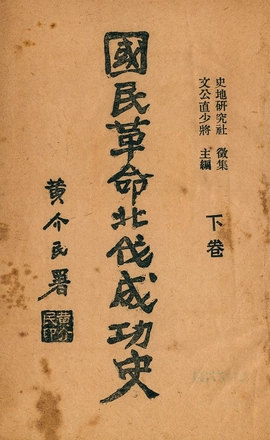 史地研究社 徵集
文公直少將 主編
下卷
國民革命北伐成功史
黄介民署
黄介民印